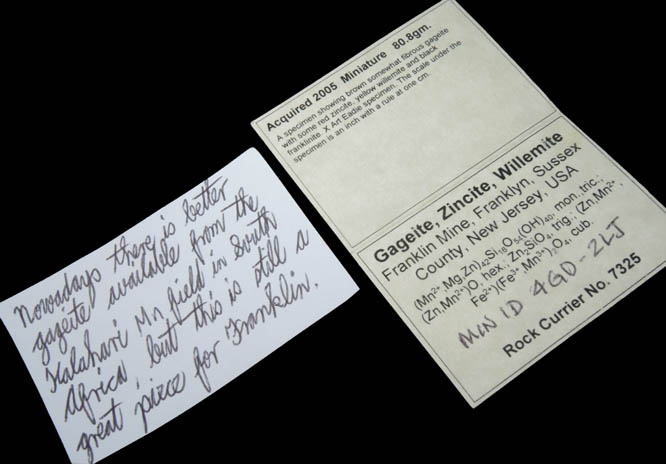 Nowadays there is better
gageite available from the
Kalahari Mn field in South
Africa but this is still a
great piece for Franklin.
Acquired 2005 Miniature 80.8gm.
A specimen showing brown somewhat fibrous gageite
with some red zincite, yellow willemite and black
franklinite. X Art Eadie specimen. The scale under the
specimen is an inch with a rule at one cm.
Gageite, Zincite, Willemite
Franklin Mine, Franklyn, Sussex
County, New Jersey, USA
(Mn²⁺,Mg,Zn)₄₂Si₁₆O₅₄(OH)₄₀, mon.,tric.;
(Zn,Mn²⁺)O, hex., Zn₂SiO₄, trig.; (Zn,Mn²⁺,
Fe²⁺)(Fe³⁺,Mn³⁺)₂O₄, cub.
MIN ID 4GD-2LJ
Rock Currier No. 7325